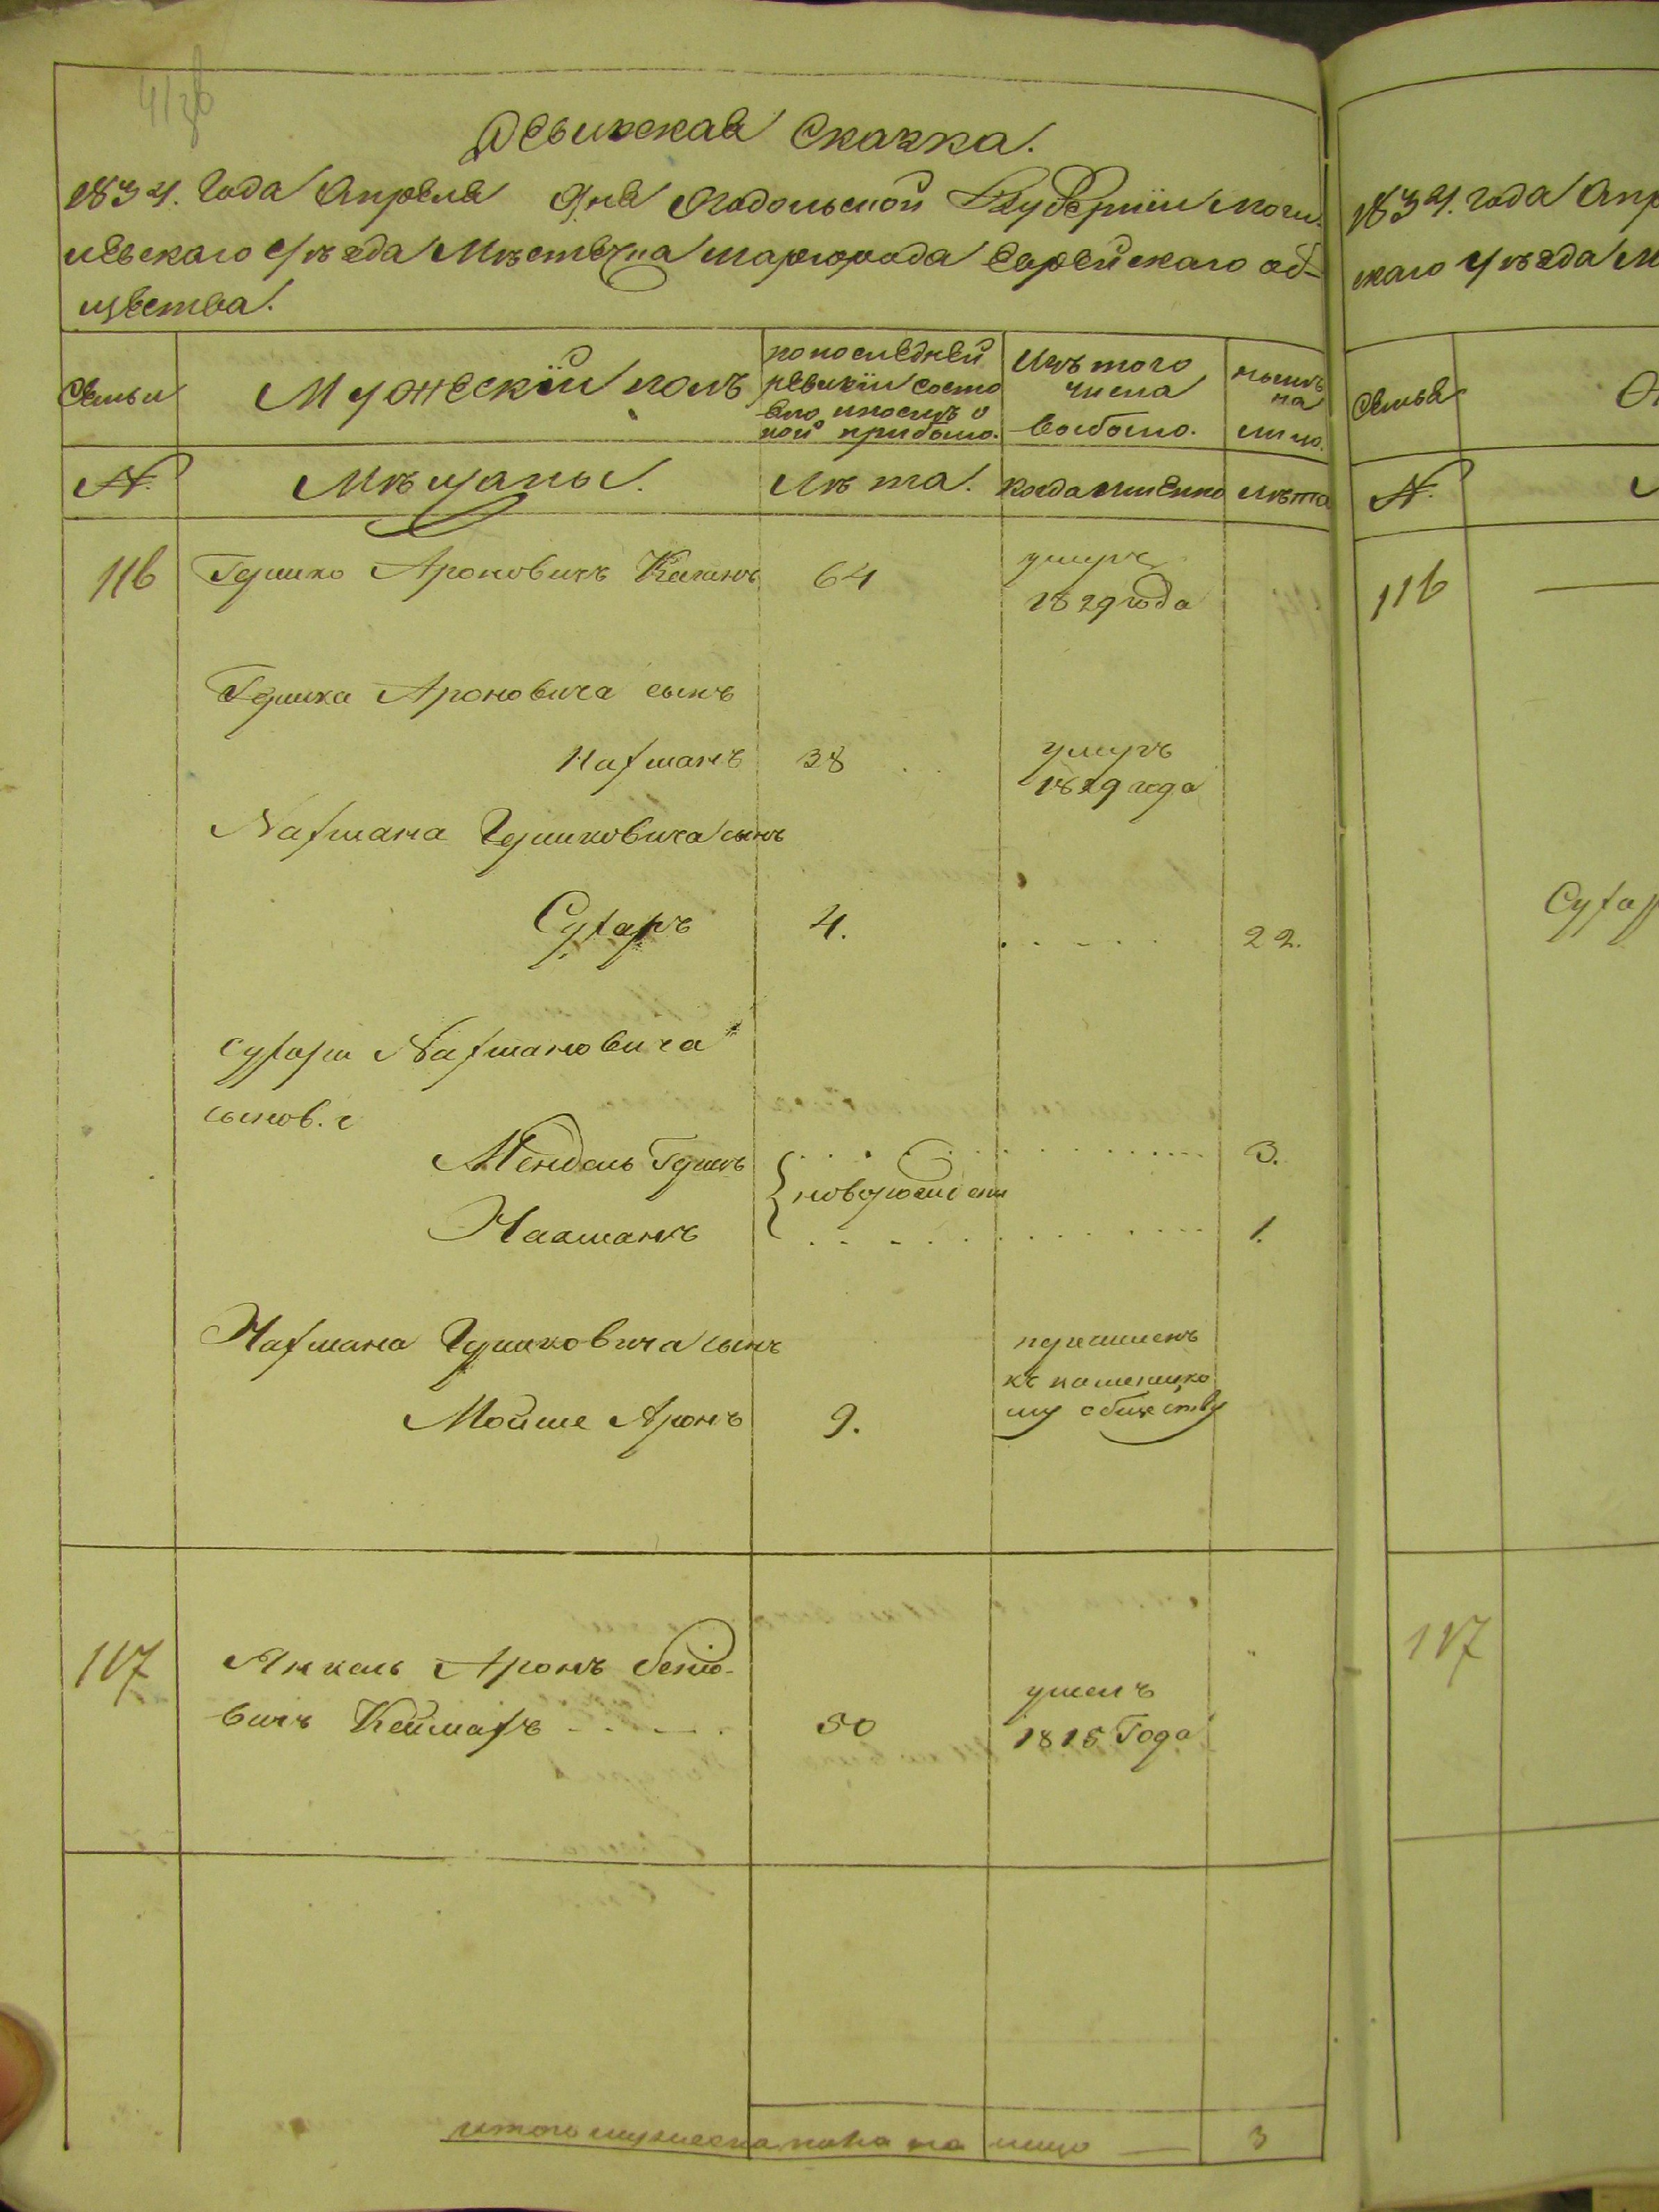 Ревижская Сказка.
1834. Года Апреля Дня Подольской Губернии Моги-
левскаго Уѣзда Мѣстечка Шаргорода Еврейскаго об-
щества.
Семьи
Мужескій полъ
по последней
ревизіи состо
яло и после о
ной прибыло.
Изъ того
числа
выбыло.
нынѣ
на
лицо.
№.
Мѣщаны.
Лѣта.
Когда именно
Лѣта
116
Гершко Ароновичъ Каганъ
64
умеръ
1829 года
Гершка Ароновича сынъ
Нахманъ
38
умеръ
1829 года
Нахмана Гершковича сынъ
Сухаръ
4.
22.
Сухаря Нахмановича
сынов. е
Мендель Гершъ
3.
новорожденн
Нахманъ
1.
Нахмана Гершковича сынъ
Мойше Аронъ
9.
перешлень
къ
му обществу
117
Янкель Аронъ
вичъ
50
умеръ
1815 Года
итого мужеска пола на лицо — 3
1834. года Апр
скаго Уѣзда М
Семья
№.
116
Суха
117